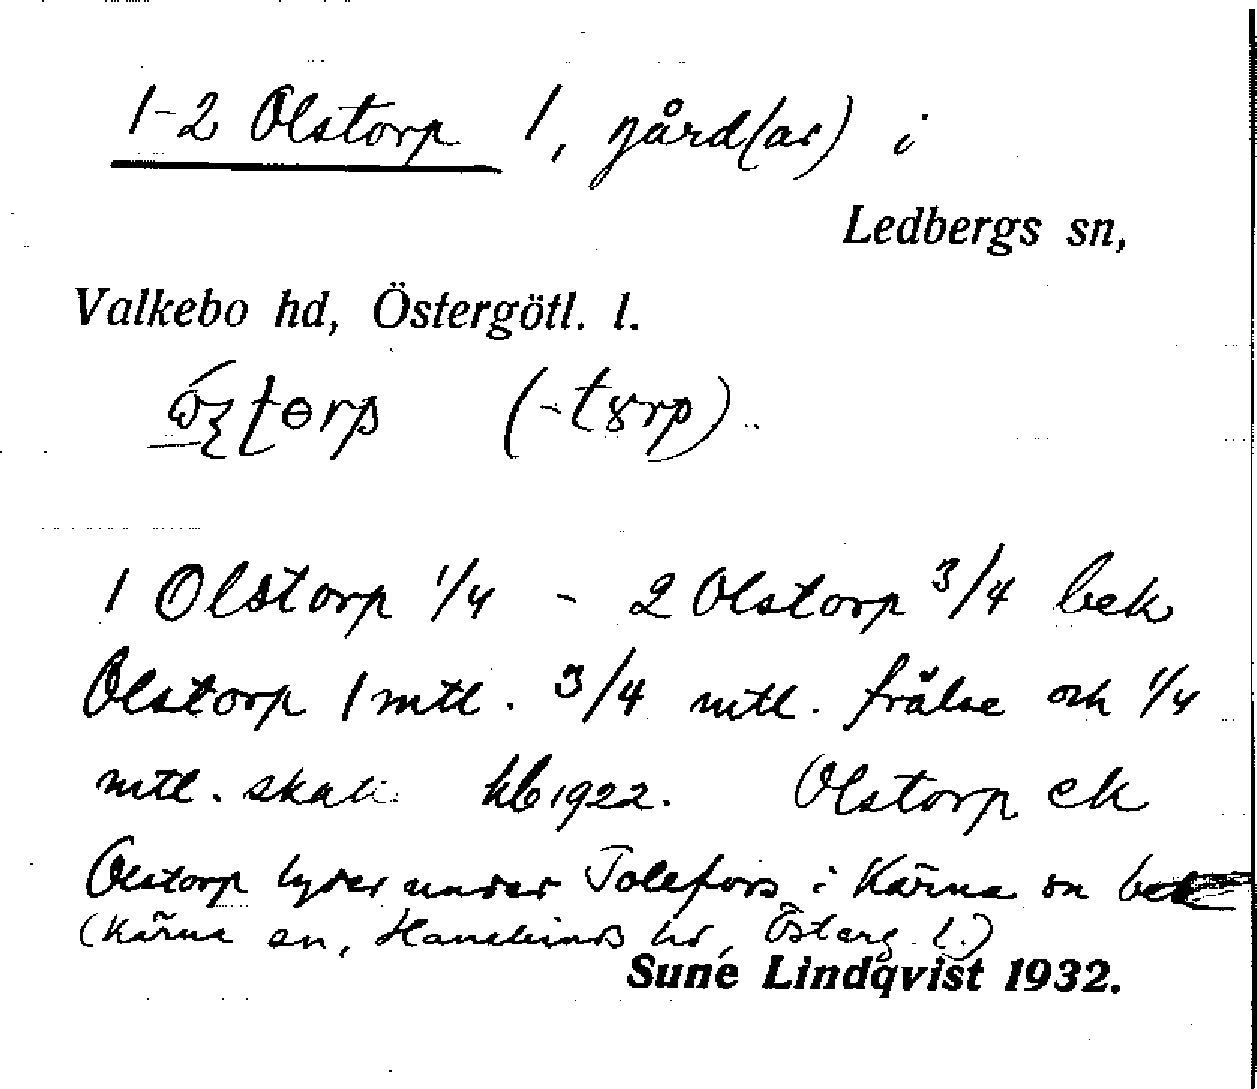 1-2 Olstorp 1, gård(ar) i
Ledbergs sn,
Valkebo hd, Östergötl. l.
1 Olstorp 1/4 - 2 Olstorp 3/4 bek
Olstorp 1 mtl. 3/4 mtl. frälse och 1/4
mtl. skatte hb 1922. Olstorp ek
Olstorp lyder under Tolefors i Kärna sn
(Kärna sn, Hanekinds hd, Österg. l.)
Sune Lindqvist 1932.